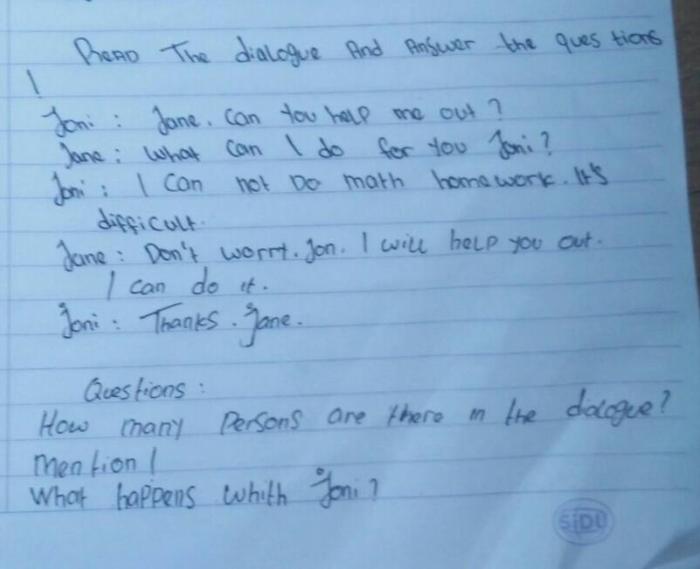 Read The dialogue And Answer the questions
!
Joni : Jane. Can You help me out ?
Jane : What can I do for You Joni ?
Joni : I Can not Do math homework. It's
difficult.
Jane : Don't worry. Jon. I will help you out.
I can do it.
Joni : Thanks. Jane.
Questions :
How many Persons are there in the dialogue ?
Mention !
What happens whith Joni ?
SiDU